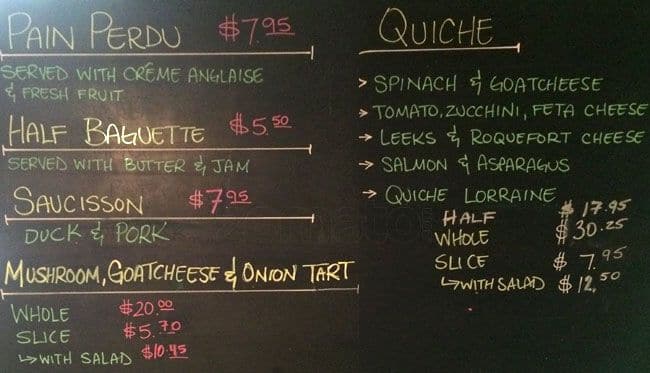 PAIN PERDU $7.95
SERVED WITH CRÉME ANGLAISE
& FRESH FRUIT
HALF BAGUETTE $5.50
SERVED WITH BUTTER & JAM
SAUCISSON $7.95
DUCK & PORK
MUSHROOM, GOATCHEESE & ONION TART
WHOLE $20.00
SLICE $5.70
↳WITH SALAD $10.45
QUICHE
> SPINACH & GOATCHEESE
→ TOMATO, ZUCCHINI, FETA CHEESE
→ LEEKS & ROQUEFORT CHEESE
→ SALMON & ASPARAGUS
→ QUICHE LORRAINE
HALF $17.95
WHOLE $30.25
SLICE $7.95
↳WITH SALAD $12.50